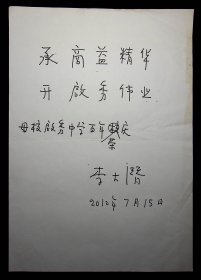 承商益精华
开啟秀伟业
母校啟秀中学百年荣庆
李大潜
2012年7月15日